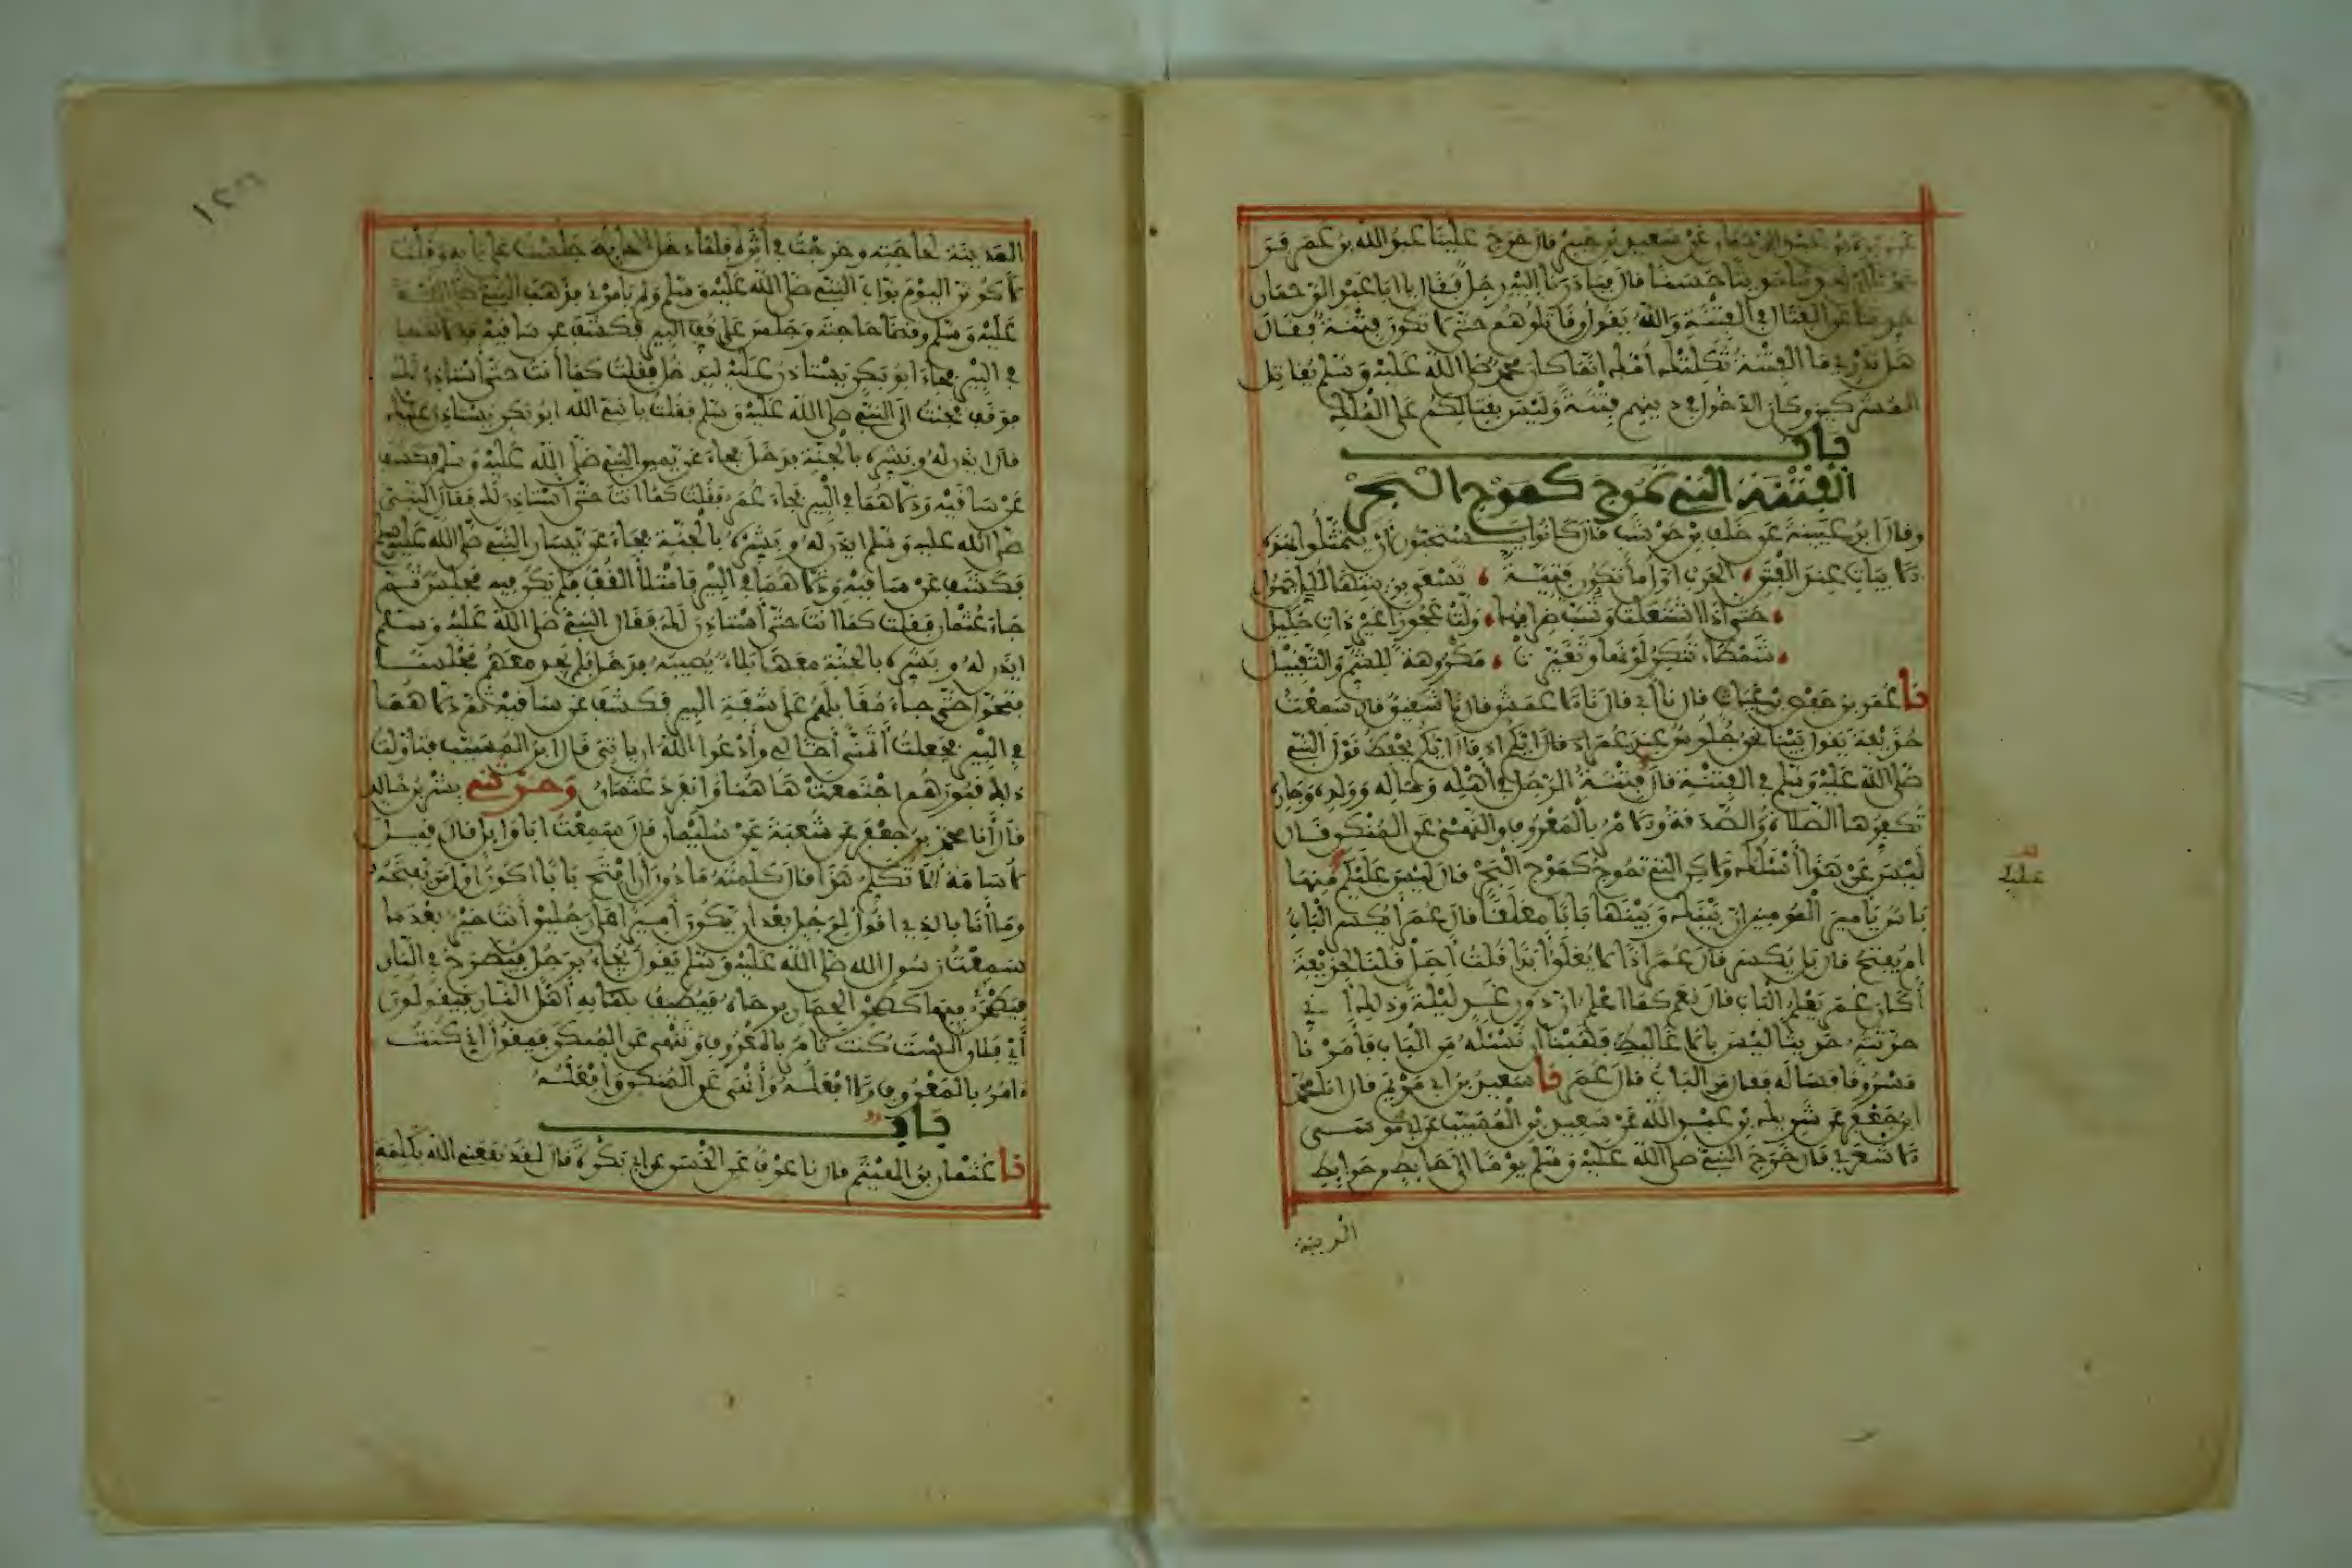 عن وبرة بن عبد الرحمان عن سعيد بن جبير قال خرج علينا عبد الله بن عمر فرجونا
أن يحدثنا حديثا حسنا قال فبادرنا إليه رجل فقال يا ابا عبد الرحمان
حدثنا عن القتال في الفتنة والله يقول وقاتلوهم حتى لا تكون فتنة فقال
هل تدري ما الفتنة ثكلتك أمك إنما كان محمد صلى الله عليه وسلم يقاتل
المشركين وكان الدخول في دينهم فتنة وليس بقتالكم على الملك
باب
الفتنة التي تموج كموج البحر
وقال ابن عيينة عن خلف بن حوشب قال كانوا يستحبون أن يتمثلوا بهذه
الابيات عند الفتن الحرب أول ما تكون فتية تسعى بزينتها لكل جهول
حتى إذا اشتعلت وشب ضرامها ولت عجوزا غير ذات حليل
شمطاء تنكر لونها وتغيرت مكروهة للشم والتقبيل
نا عمر بن حفص بن غياث قال نا أبي قال نا الاعمش قال نا شقيق قال سمعت
حذيفة يقول بينا نحن جلوس عند عمر اذ قال ايكم يحفظ قول النبي
صلى الله عليه وسلم في الفتنة قال فتنة الرجل في أهله وماله وولده وجاره
تكفرها الصلاة والصدقة والامر بالمعروف والنهي عن المنكر قال
ليس عن هذا أسئلك ولاكن التي تموج كموج البحر قال ليس عليكم منها
عليك
باس يا أمير المومنين إن بينك وبينها بابا مغلقا قال عمر أيكسر الباب
ام يفتح قال بل يكسر قال عمر اذا لا يغلق أبدا قلت أجل قلنا لحذيفة
أكان عمر يعلم الباب قال نعم كما اعلم ان دون غد ليلة وذلك أني
حدثته حديثا ليس بالاغاليط فهبنا ان نسئله من الباب فأمرنا
مسروقا فسأله فقال من الباب قال عمر نا سعيد بن ابي مريم قال انا محمد
ابن جعفر عن شريك بن عبد الله عن سعيد بن المسيب عن ابي موسى
الاشعري قال خرج النبي صلى الله عليه وسلم يوما الى حايط من حوايط
المدينة
المدينة لحاجته وخرجت في أثره فلما دخل الحايط جلست على بابه وقلت
لاكونن اليوم بواب النبي صلى الله عليه وسلم ولم يامرني فذهب النبي صلى الله
عليه وسلم وقضا حاجته وجلس على قف البير فكشف عن ساقيه ودلاهما
في البير فجاء ابو بكر يستاذن عليه ليدخل فقلت كما أنت حتى أستاذن لك
فوقف فجئت الى النبي صلى الله عليه وسلم فقلت يا نبي الله ابو بكر يستاذن عليك
قال ايذن له وبشره بالجنة فدخل فجاء عن يمين النبي صلى الله عليه وسلم فكشف
عن ساقيه ودلاهما في البير فجاء عمر فقلت كما انت حتى أستاذن لك فقال النبي
صلى الله عليه وسلم ايذن له وبشره بالجنة فجاء عن يسار النبي صلى الله عليه وسلم
فكشف عن ساقيه ودلاهما في البير فامتلأ القف فلم يكن فيه مجلس ثم
جاء عثمان فقلت كما انت حتى أستاذن لك فقال النبي صلى الله عليه وسلم
ايذن له وبشره بالجنة معها بلاء يصيبه فدخل فلم يجد معهم مجلسا
فتحول حتى جاء مقابلهم على شفة البير فكشف عن ساقيه ثم دلاهما
في البير فجعلت أتمنى أخا لي وأدعوا الله ان ياتي قال ابن المسيب فتاولت
ذلك قبورهم اجتمعت هاهنا وانفرد عثمان وحدثني بشر بن خالد
قال أنا محمد بن جعفر عن شعبة عن سليمان قال سمعت ابا وايل قال قيل
لاسامة ألا تكلم هذا قال كلمته ما دون أن افتح بابا اكون أول من يفتحه
وما أنا بالذي اقول لرجل بعد ان يكون أميرا على رجلين أنت خير بعد ما
سمعت رسول الله صلى الله عليه وسلم يقول يجاء برجل فيطرح في النار
فيطحن فيها كطحن الحمار برحاه فيطيف به أهل النار فيقولون
أي فلان ألست كنت تامر بالمعروف وتنهى عن المنكر فيقول اني كنت
ءامر بالمعروف ولا أفعله وأنهى عن المنكر وأفعله
باب
نا عثمان بن الهيثم قال نا عوف عن الحسن عن ابي بكرة قال لقد نفعني الله بكلمة